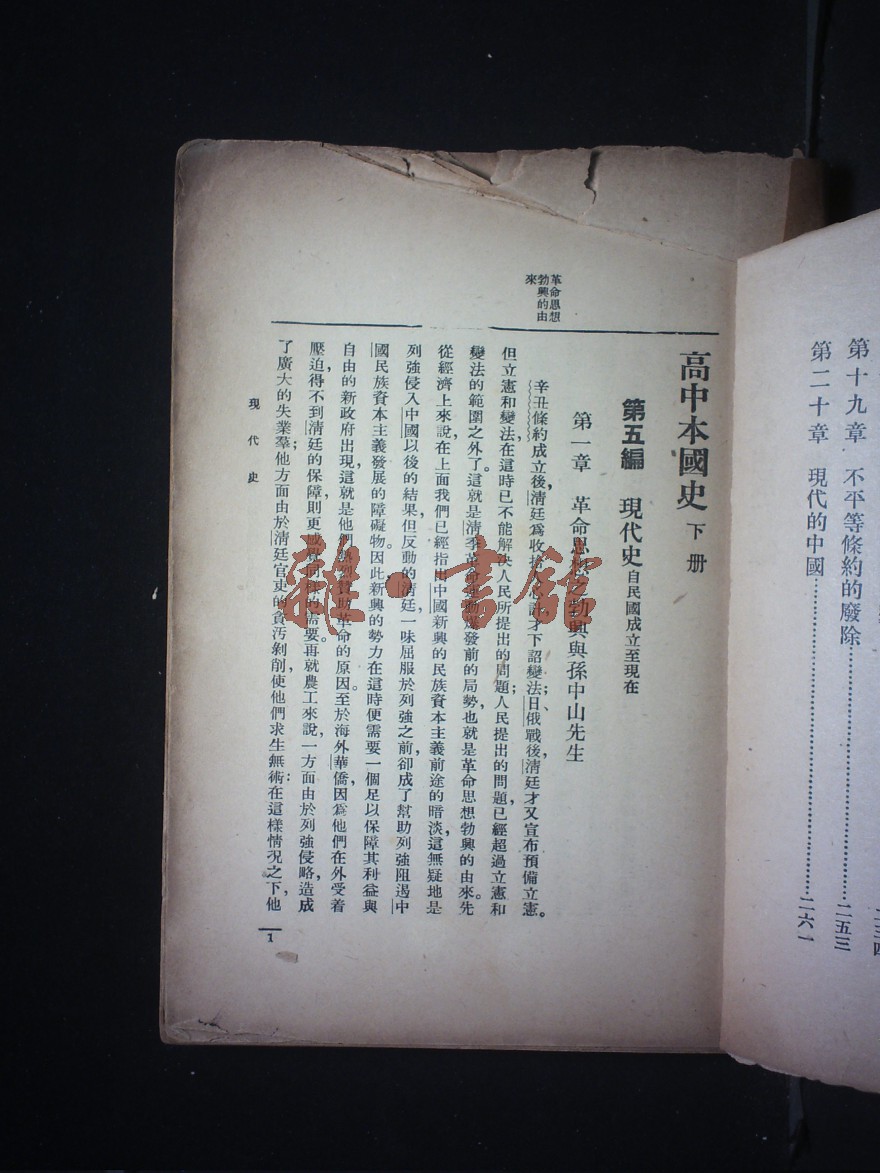 第十九章　不平等條約的廢除……………二五三
第二十章　現代的中國……………二六一
高中本國史　下册
第五編　現代史　自民國成立至現在
第一章　革命思想之勃興與孫中山先生
革命思想
勃興的由
來
辛丑條約成立後，清廷爲收拾人心計，才下詔變法；日俄戰後，清廷才又宣布預備立憲。
但立憲和變法，在這時已不能解決人民所提出的問題；人民提出的問題，已經超過立憲和
變法的範圍之外了。這就是清季革命運動爆發前的局勢，也就是革命思想勃興的由來。先
從經濟上來說，在上面我們已經指出中國新興的民族資本主義前途的暗淡，這無疑地是
列強侵入中國以後的結果，但反動的清廷一味屈服於列強之前，卻成了幫助列強阻遏中
國民族資本主義發展的障礙物。因此，新興的勢力在這時便需要一個足以保障其利益與
自由的新政府出現，這就是他們熱烈贊助革命的原因。至於海外華僑，因爲他們在外受着
壓迫，得不到清廷的保障，則更感覺同樣的需要。再就農工來說，一方面由於列強侵略，造成
了廣大的失業羣；他方面由於清廷官吏的貪汚剝削，使他們求生無術：在這樣情況之下，他
現代史
1
雜·書館